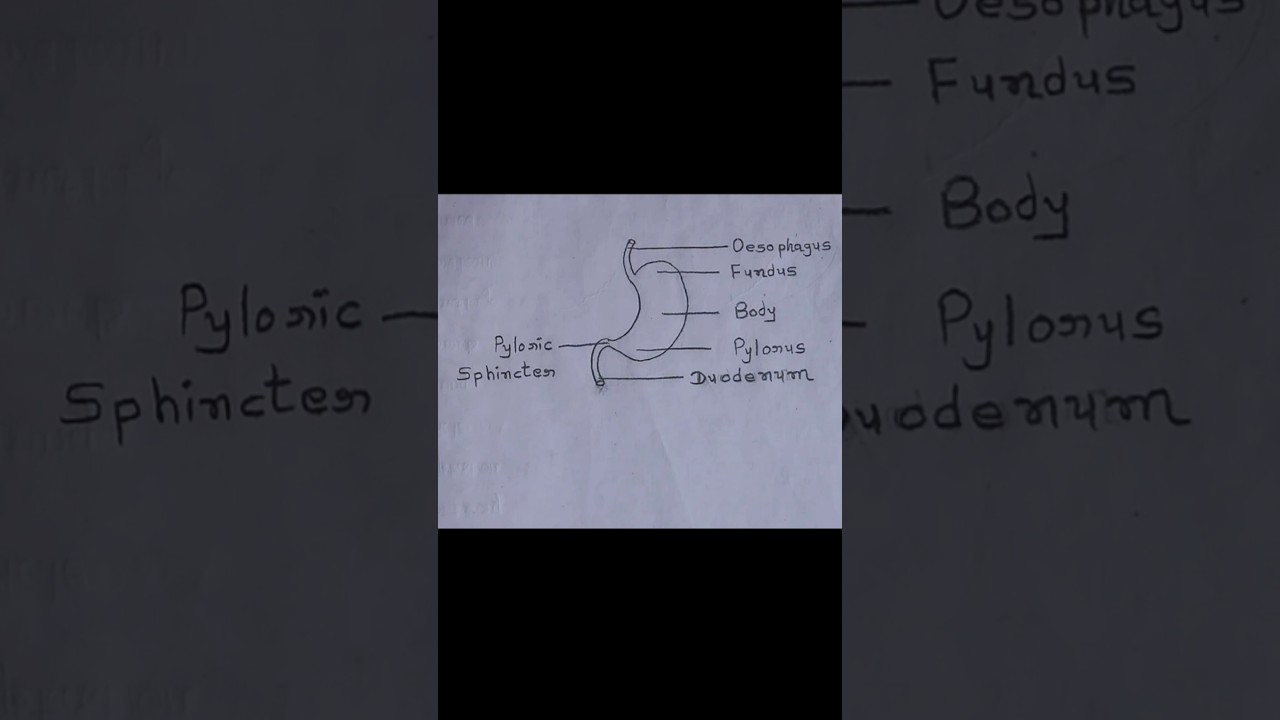 Oesophagus
Fundus
Body
Pyloric
Sphincter
Pylorus
Duodenum